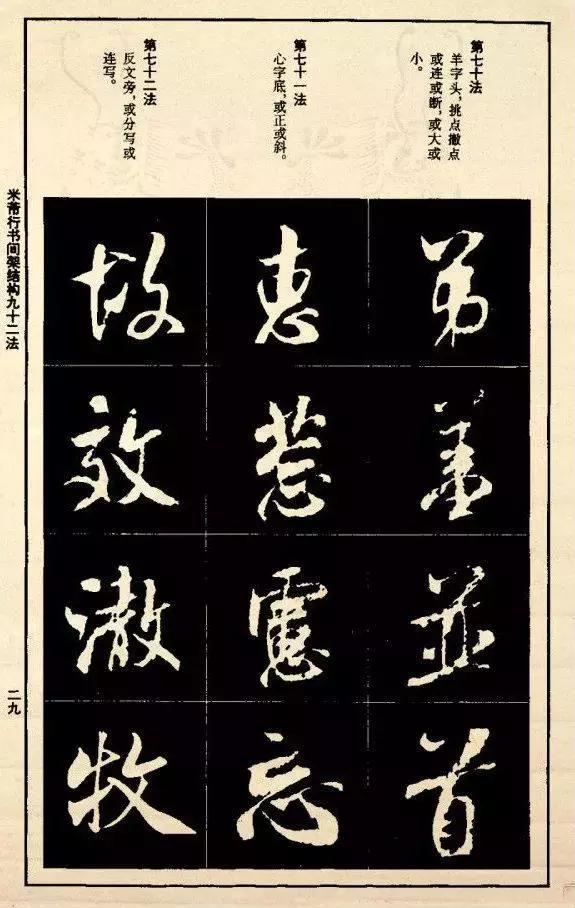 第七十法
羊字头，挑点撇点
或连或断，或大或
小。
第七十一法
心字底，或正或斜。
第七十二法
反文旁，或分写或
连写。
弟
並
首
恵
惹
忘
故
效
澈
牧
米芾行书间架结构九十二法
二九